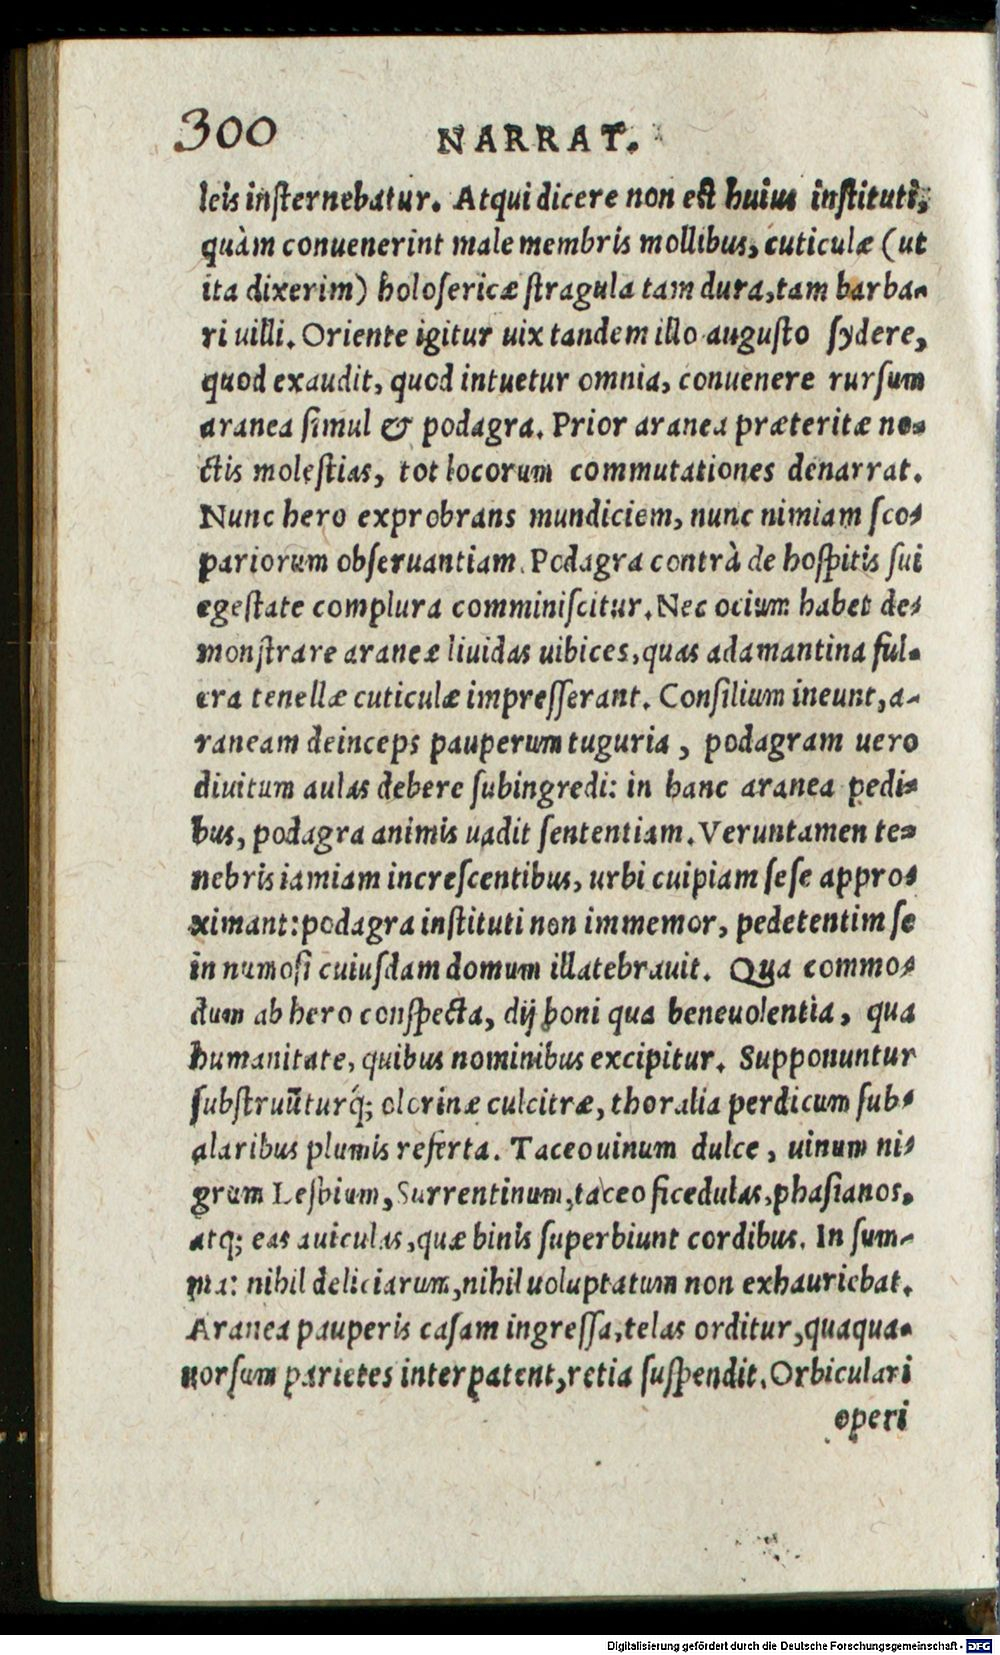 300 NARRAT.
leis insternebatur. Atqui dicere non est huius instituti,
quàm conuenerint male membris mollibus, cuticulæ (ut
ita dixerim) holosericæ stragula tam dura, tam barba-
ri uilli. Oriente igitur uix tandem illo augusto sydere,
quod exaudit, quod intuetur omnia, conuenere rursum
aranea simul & podagra. Prior aranea præteritæ no-
ctis molestias, tot locorum commutationes denarrat.
Nunc hero exprobrans mundiciem, nunc nimiam sco-
pariorum obseruantiam. Podagra contrà de hospitis sui
egestate complura comminiscitur. Nec ocium habet de-
monstrare araneæ liuidas uibices, quas adamantina ful-
cra tenellæ cuticulæ impresserant. Consilium ineunt, a-
raneam deinceps pauperum tuguria, podagram uero
diuitum aulas debere subingredi: in hanc aranea pedi-
bus, podagra animis uadit sententiam. Veruntamen te-
nebris iamiam increscentibus, urbi cuipiam sese appro-
ximant: podagra instituti non immemor, pedetentim se
in numosi cuiusdam domum illatebrauit. Qua commo-
dum ab hero conspecta, dij boni qua beneuolentia, qua
humanitate, quibus nominibus excipitur. Supponuntur
substruũturq́; olorinæ culcitræ, thoralia perdicum sub-
alaribus plumis referta. Taceo uinum dulce, uinum ni-
grum Lesbium, Surrentinum, taceo ficedulas, phasianos.
atq; eas auiculas, quæ binis superbiunt cordibus. In sum-
ma: nihil deliciarum, nihil uoluptatum non exhauriebat.
Aranea pauperis casam ingressa, telas orditur, quaqua-
uorsum parietes interpatent, retia suspendit. Orbiculari
operi
Digitalisierung gefördert durch die Deutsche Forschungsgemeinschaft - DFG